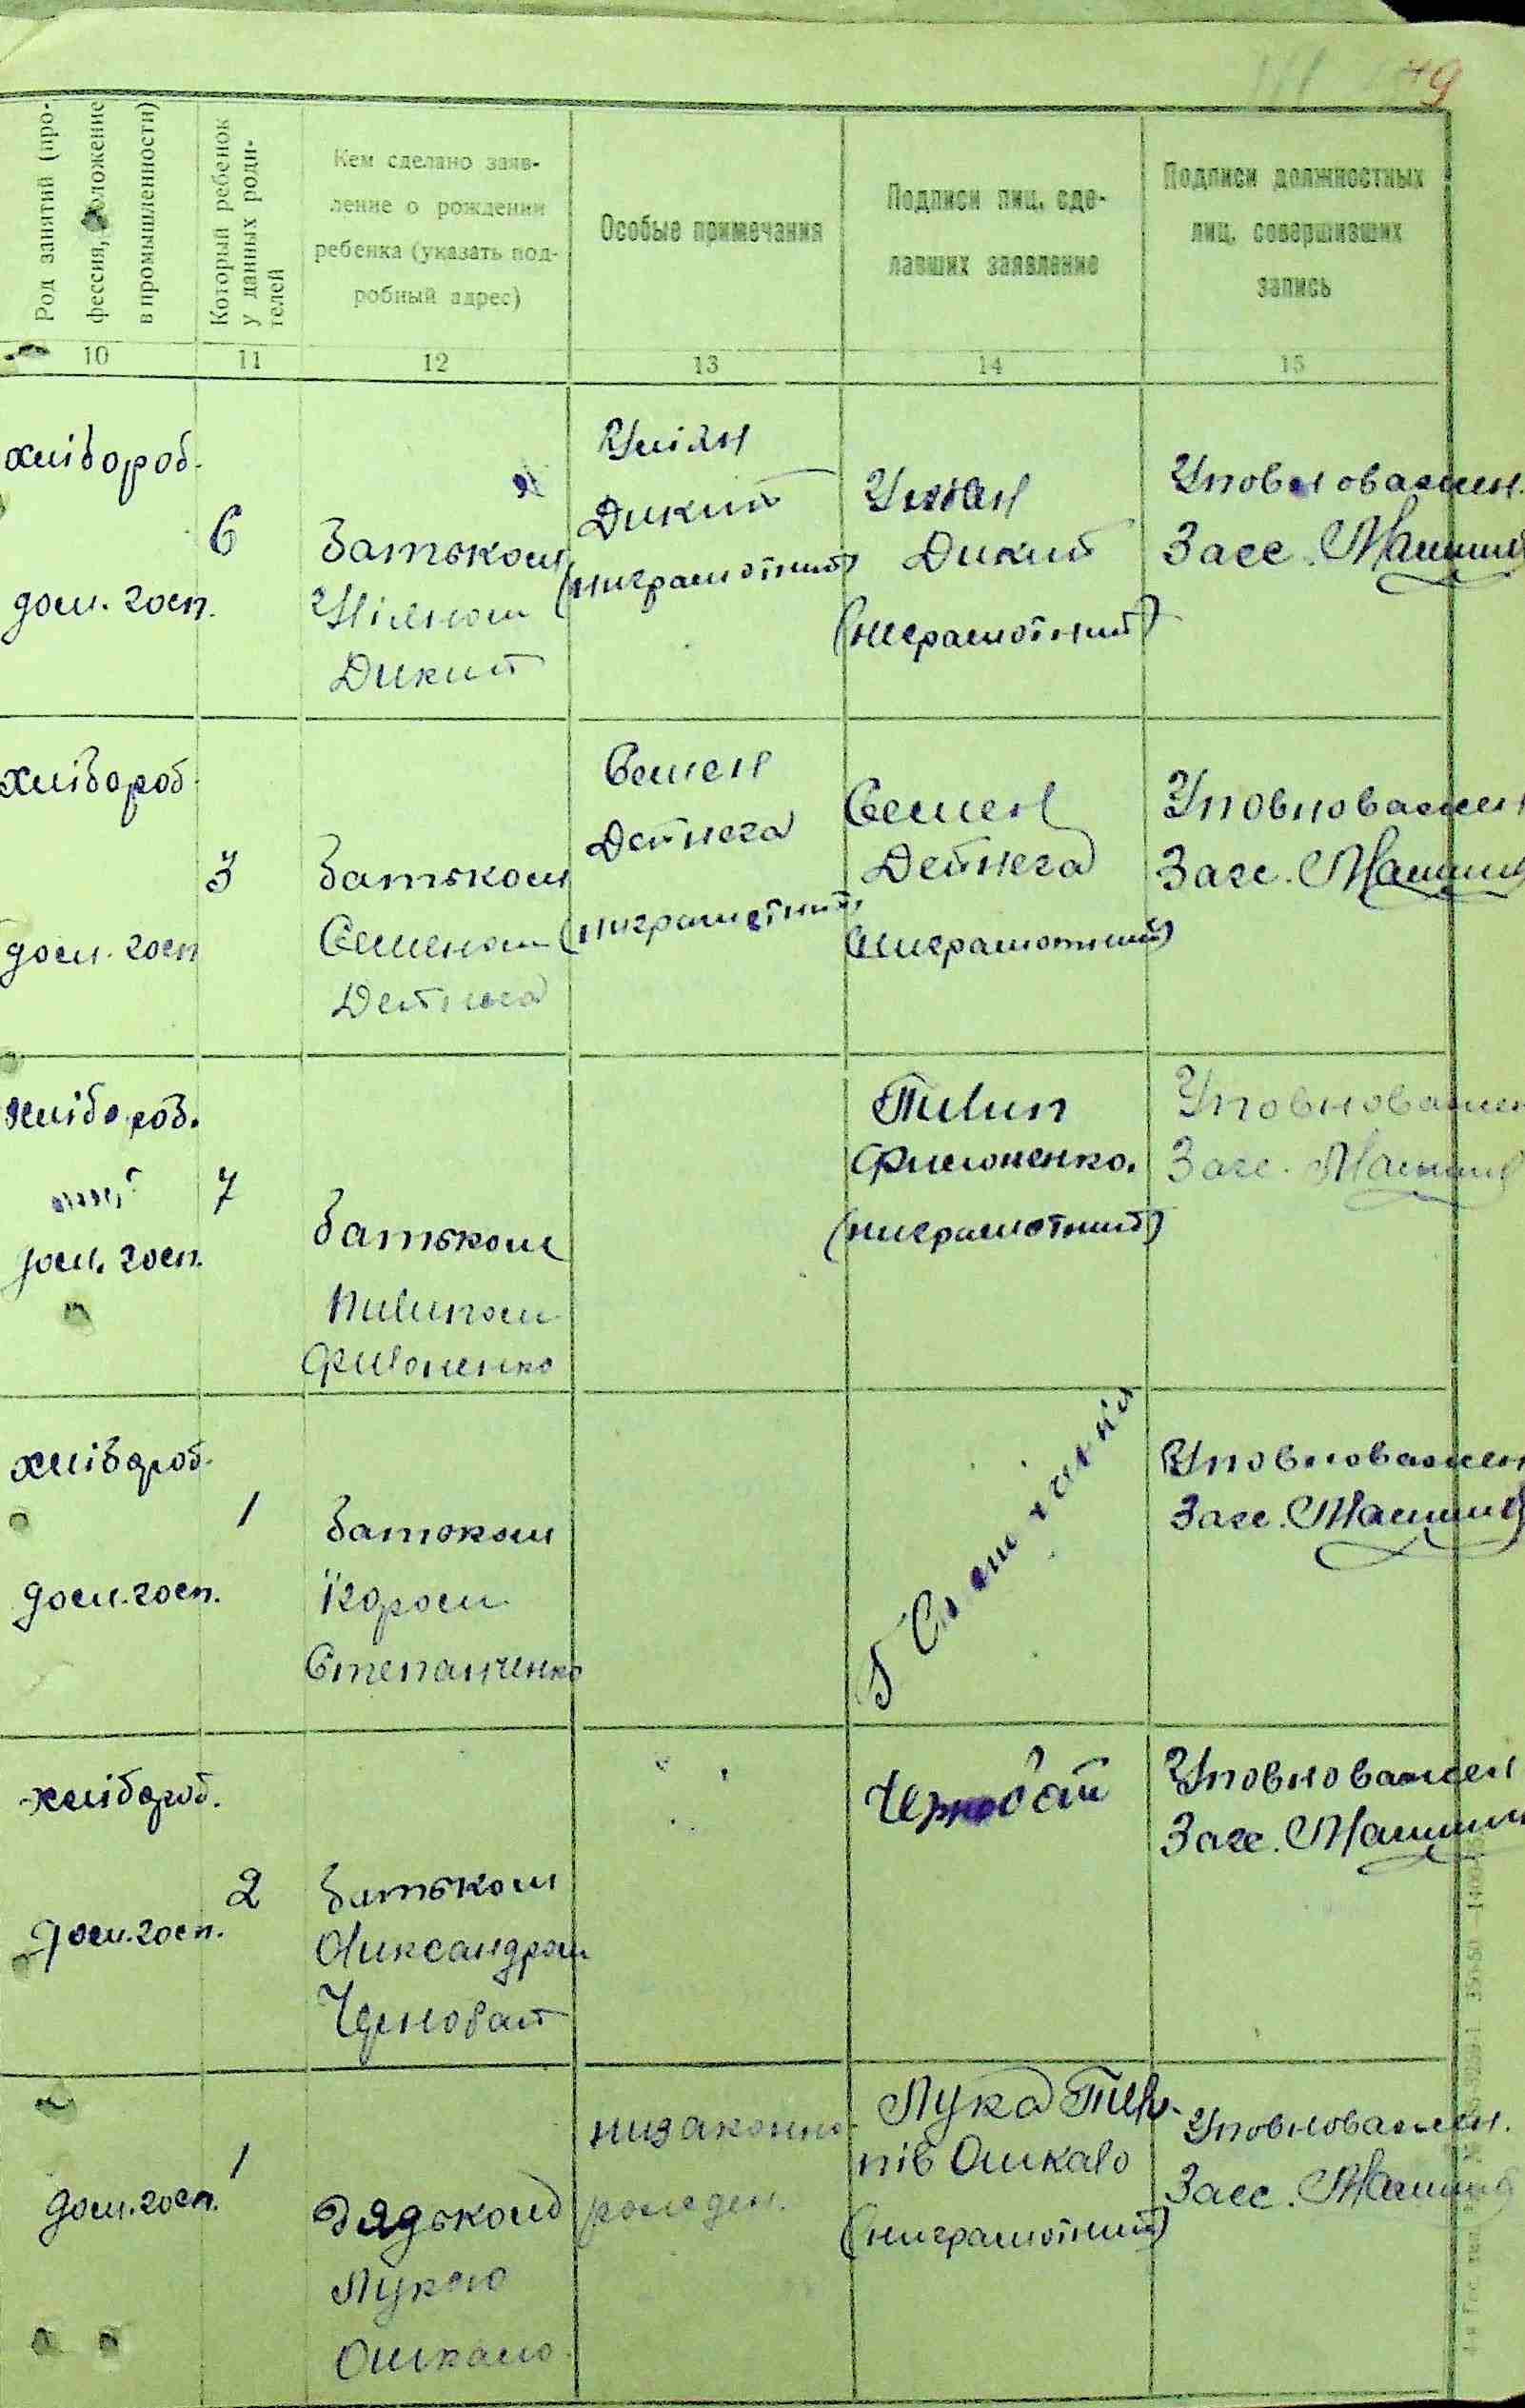 49
Род занятий (про-
фессия, положение
в промышленности)
Который ребенок
у данных роди-
телей
Кем сделано заяв-
ление о рождении
ребенка (указать под-
робный адрес)
Особые примечания
Подписи лиц, сде-
лавших заявление
Подписи должностных
лиц, совершивших
запись
10
11
12
13
14
15
хлібороб.
дом. госп.
6
Батьком
Уліяном
Дикий
Уліян
Дикий
(ниграмотний)
Уліян
Дикий
(неграмотний)
Уповноважен.
Загс.
хлібороб.
дом. госп
3
Батьком
Семеном
Дейнега
Семен
Дейнега
(ниграмотний)
Семен
Дейнега
(ниграмотний)
Уповноважен
Загс.
хлібороб.
дом. госп.
7
Батьком
Пилипом
Филоненко
Пилип
Филоненко.
(ниграмотний)
Уповноважен
Загс.
хлібороб.
дом. госп.
1
Батьком
Степанченко
Уповноважен
Загс.
хлібороб.
дом. госп.
2
Батьком
Олександром
Чорнобай
Чорнобай
Уповноважен
Загс.
дом. госп.
1
Дядьком
Лукою
Ошкало
низаконно
рожден.
Лука
Ошкало
(ниграмотний)
Уповноважен.
Загс.